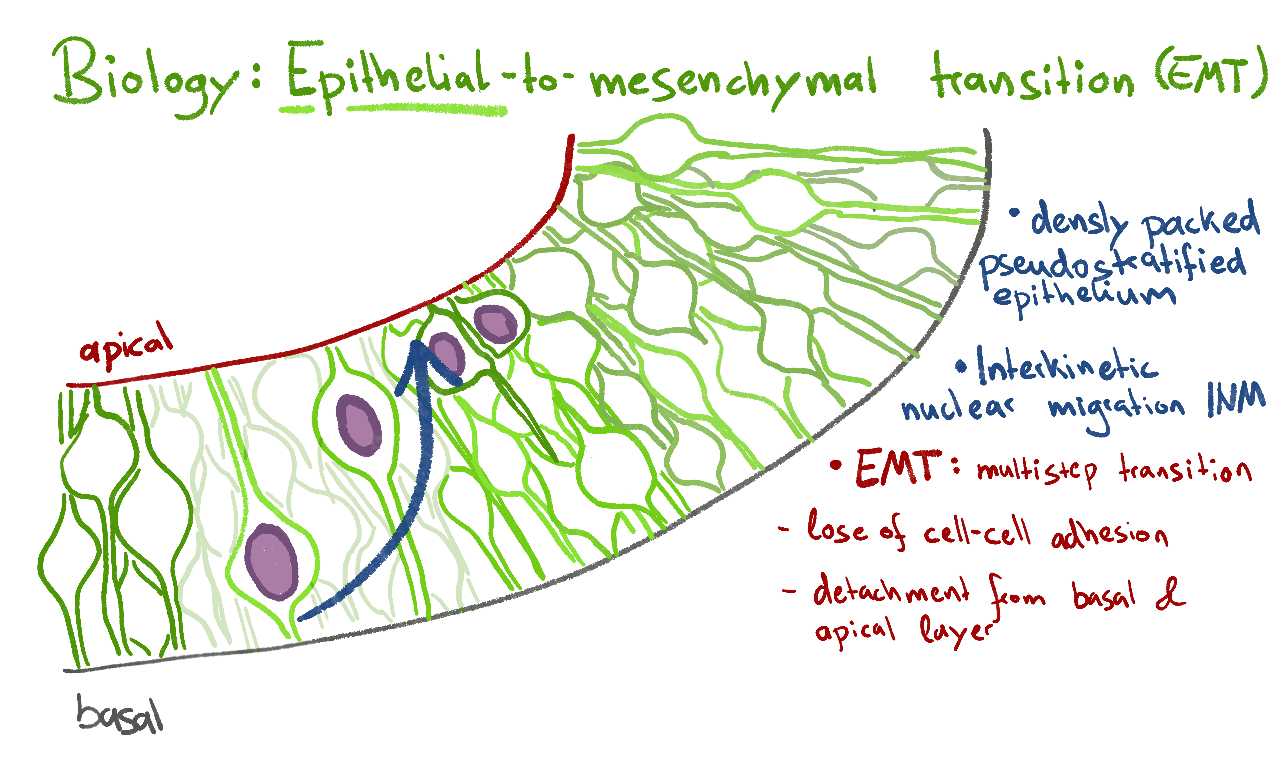 Biology: Epithelial-to-mesenchymal transition (EMT)
• densly packed
pseudostratified
epithelium
apical
• Interkinetic
nuclear migration INM
• EMT: multistep transition
- lose of cell-cell adhesion
- detachment from basal &
apical layer
basal